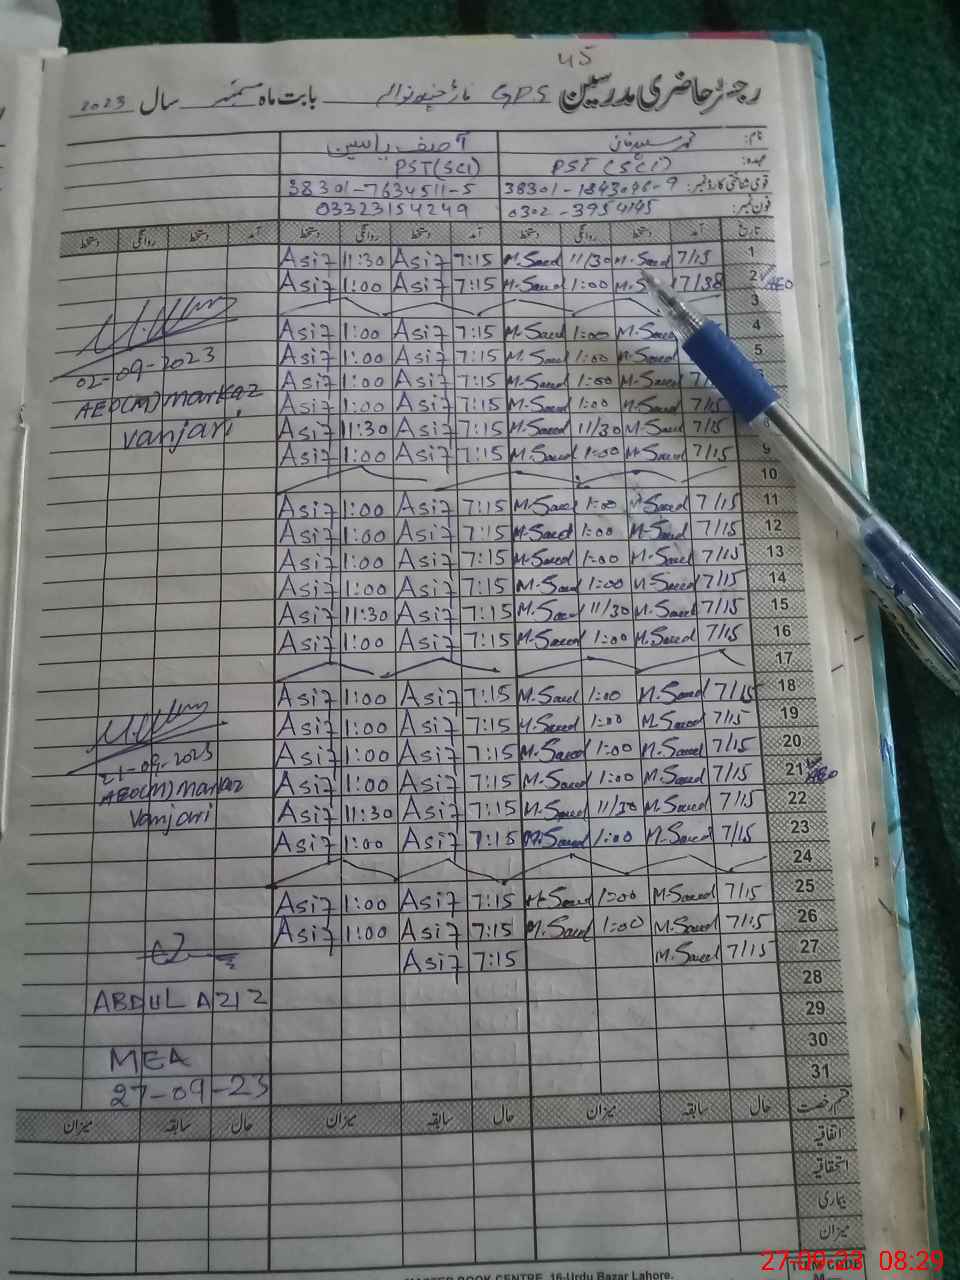 45
رجسٹر حاضری مدرسین GPS بابت ماہ ستمبر سال 2023
نام: آصف یاسین
عہدہ: PST (SCI) PST(SCI)
قومی شناختی کارڈ نمبر: 38301-1843046-9 38301-7634511-5
فون نمبر: 0302-3954145 03323154249
تاریخ آمد دستخط روانگی دستخط آمد دستخط روانگی دستخط آمد دستخط روانگی دستخط
Asif 11:30 Asif 7:15 M.Saeed 11/30 M.Saeed 7/15 1
Asif 1:00 Asif 7:15 M.Saeed 1:00 17/38 2 AEO
3
Asif 1:00 Asif 7:15 M.Saeed 1:00 M.Saeed 4
Asif 1:00 Asif 7:15 M.Saeed 1:00 M.Saeed 5
02-09-2023
Asif 1:00 Asif 7:15 M.Saeed 1:00 M.Saeed
AEO(M) markaz
Asif 1:00 Asif 7:15 M.Saeed 1:00 M.Saeed 7/15
Vanjari
Asif 11:30 Asif 7:15 M.Saeed 11/30 M.Saeed 7/15 8
Asif 1:00 Asif 7:15 M.Saeed 1:00 M.Saeed 7/15 9
10
Asif 1:00 Asif 7:15 M.Saeed 1:00 M.Saeed 7/15 11
Asif 1:00 Asif 7:15 M.Saeed 1:00 M.Saeed 7/15 12
Asif 1:00 Asif 7:15 M.Saeed 1:00 M.Saeed 7/15 13
Asif 1:00 Asif 7:15 M.Saeed 1:00 M.Saeed 7/15 14
Asif 11:30 Asif 7:15 M.Saeed 11/30 M.Saeed 7/15 15
Asif 1:00 Asif 7:15 M.Saeed 1:00 M.Saeed 7/15 16
17
Asif 1:00 Asif 7:15 M.Saeed 1:00 M.Saeed 7/15 18
Asif 1:00 Asif 7:15 M.Saeed 1:00 M.Saeed 7/15 19
Asif 1:00 Asif 7:15 M.Saeed 1:00 M.Saeed 7/15 20
21-09-2023
Asif 1:00 Asif 7:15 M.Saeed 1:00 M.Saeed 7/15 21 AEO
AEO(M) markaz
Asif 11:30 Asif 7:15 M.Saeed 11/30 M.Saeed 7/15 22
Vanjari
Asif 1:00 Asif 7:15 M.Saeed 1:00 M.Saeed 7/15 23
24
Asif 1:00 Asif 7:15 M.Saeed 1:00 M.Saeed 7/15 25
Asif 1:00 Asif 7:15 M.Saeed 1:00 M.Saeed 7/15 26
Asif 7:15 M.Saeed 7/15 27
28
ABDUL AZIZ
29
30
MEA
31
27-09-23
قسم رخصت حال سابقہ میزان حال سابقہ میزان حال سابقہ میزان
اتفاقیہ
استحقاقیہ
بیماری
میزان
MASTER BOOK CENTRE, 16-Urdu Bazar Lahore.
ITEM CODE
27-09-23 08:29